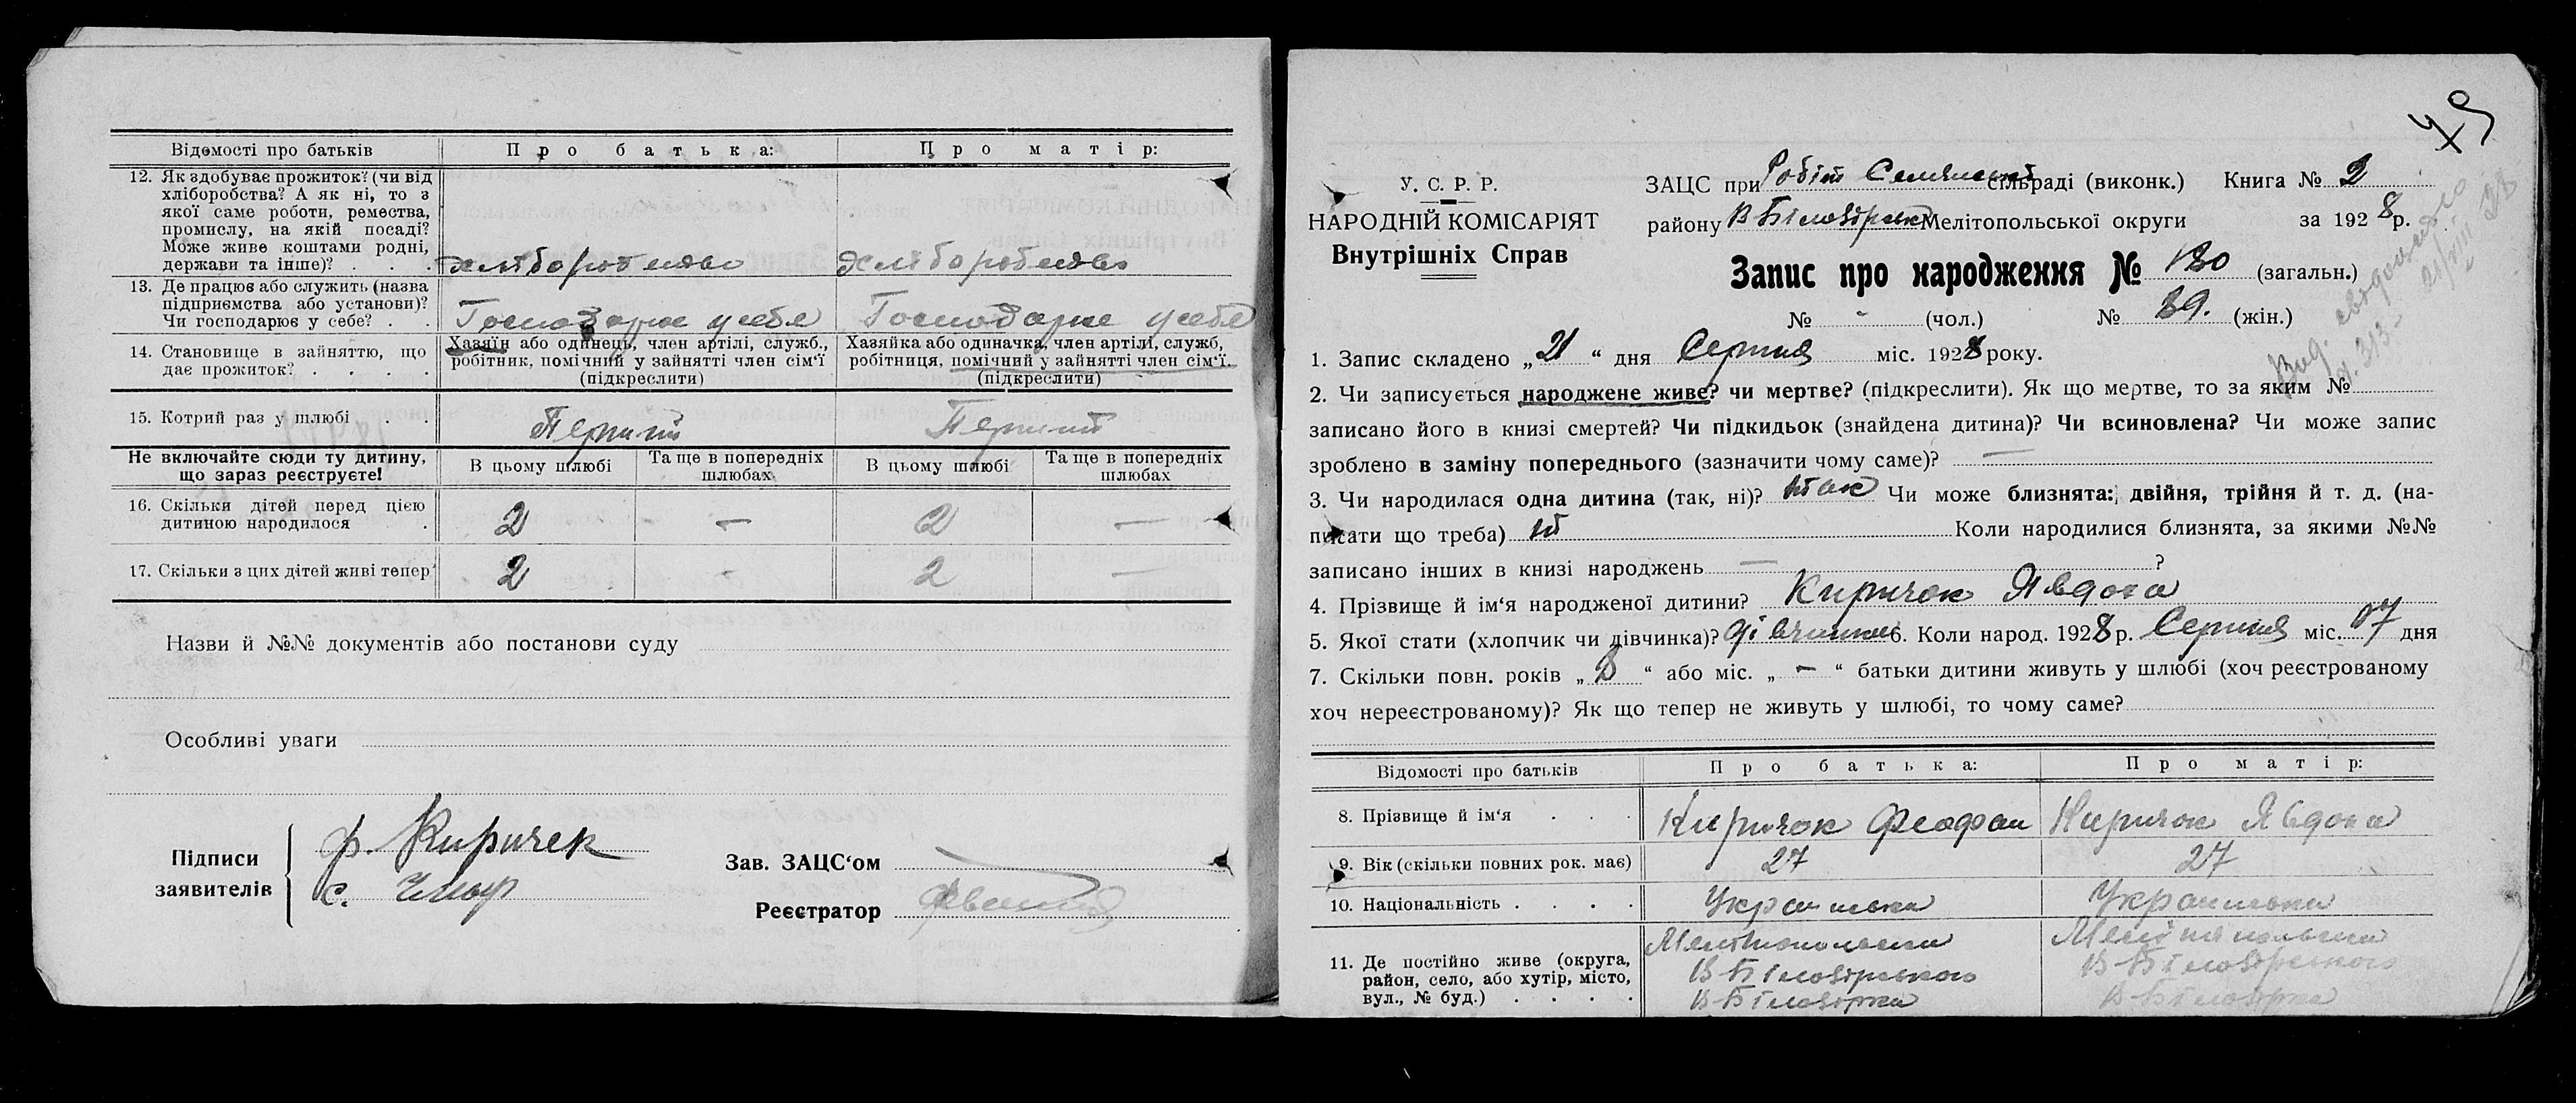 Відомості про батьків
Про батька:
Про матір:
12. Як здобуває прожиток? (чи від
хліборобства? А як ні, то з
якої саме роботи, ремества,
промислу, на якій посаді?
Може живе коштами родні,
держави та інше)? . . .
хліборобство
хліборобство
13. Де працює або служить (назва
підприємства або установи)?
Чи господарює у себе? . .
Господарює у себе
Господарює у себе
14. Становище в зайняттю, що
дає прожиток? . . . .
Хазяїн або одинець, член артілі, служб.,
робітник, помічний у зайнятті член сім'ї
(підкреслити)
Хазяйка або одиначка, член артілі, служб,
робітниця, помічний у зайнятті член сім'ї.
(підкреслити)
15. Котрий раз у шлюбі . .
Перший
Перший
Не включайте сюди ту дитину,
що зараз реєструєте!
В цьому шлюбі
Та ще в попередніх
шлюбах
В цьому шлюбі
Та ще в попередніх
шлюбах
16. Скільки дітей перед цією
дитиною народилося .
2 — 2 —
17. Скільки з цих дітей живі тепер?
2 - 2 —
Назви й №№ документів або постанови суду
Особливі уваги
Підписи
заявителів
Ф. Киричек
С.
Зав. ЗАЦС'ом
Реєстратор
79
У. С. Р. Р.
НАРОДНІЙ КОМІСАРІЯТ
Внутрішніх Справ
ЗАЦС при сільраді (виконк.) Книга № 2
району В-Білозірськ Мелітопольської округи за 1928 р.
Запис про народження № 130 (загальн.)
№ - (чол.) № 39. (жін.)
Вид. свідоцтво
№ 313 - 21/VIII 28
1. Запис складено „21“ дня Серпня міс. 1928 року.
2. Чи записується народжене живе? чи мертве? (підкреслити). Як що мертве, то за яким №
записано його в книзі смертей? Чи підкидьок (знайдена дитина)? Чи всиновлена? Чи може запис
зроблено в заміну попереднього (зазначити чому саме)? —
3. Чи народилася одна дитина (так, ні)? так Чи може близнята: двійня, трійня й т. д. (на-
писати що треба) ні Коли народилися близнята, за якими №№
записано інших в книзі народжень — ?
4. Прізвище й ім'я народженої дитини? Киричок Явдоха
5. Якої стати (хлопчик чи дівчинка)? дівчинка 6. Коли народ. 1928 р. Серпня міс. 07 дня
7. Скільки повн. років „8“ або міс. „—“ батьки дитини живуть у шлюбі (хоч реєстрованому
хоч нереєстрованому)? Як що тепер не живуть у шлюбі, то чому саме?
Відомості про батьків
Про батька:
Про матір:
8. Прізвище й ім'я . . .
Киричок Феофан
Киричок Явдоха
9. Вік (скільки повних рок. має)
27
27
10. Національність . . . .
Українська
Українська
11. Де постійно живе (округа,
район, село, або хутір, місто,
вул., № буд.) . . . .
Мелітопольська
В-Білозірського
В-Білозірка
Мелітопольська
В-Білозірського
В-Білозірка